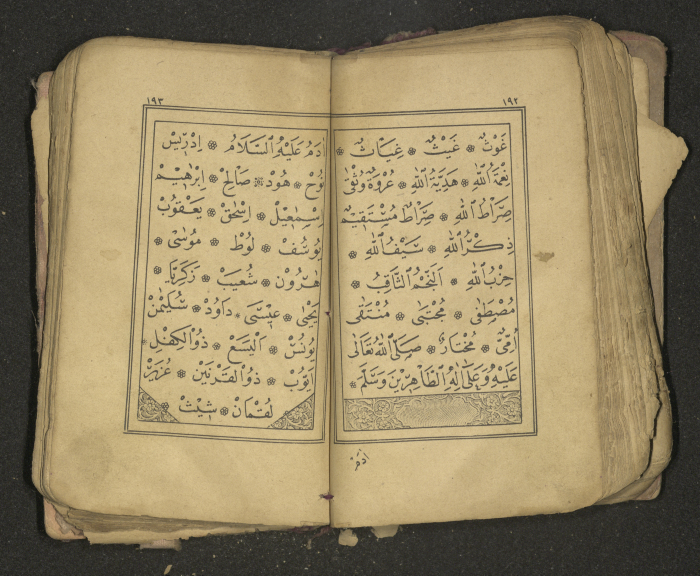 ١٩٢
غَوْثٌ ❁ غَيْثٌ ❁ غِيَاثٌ ❁
نِعْمَةُ اللّٰهِ ❁ هَدِيَّةُ اللّٰهِ ❁ عُرْوَةٌ وُثْقٰى
صِرَاطُ اللّٰهِ ❁ صِرَاطٌ مُسْتَقِيمٌ
ذِكْرُ اللّٰهِ ❁ سَيْفُ اللّٰهِ ❁
حِزْبُ اللّٰهِ ❁ اَلنَّجْمُ الثَّاقِبُ ❁
مُصْطَفٰى ❁ مُجْتَبٰى ❁ مُنْتَقٰى
اُمِّىٌّ ❁ مُخْتَارٌ ❁ صَلَّى اللّٰهُ تَعَالٰى
عَلَيْهِ وَعَلٰى اٰلِهِ الطَّاهِرِينَ وَسَلَّمَ ❁
اٰدَمُ
١٩٣
اٰدَمُ عَلَيْهِ السَّلَامُ ❁ اِدْرِيسْ
نُوحْ ❁ هُودْ ❁ صَالِحْ ❁ اِبْرٰهِيمْ
اِسْمٰعِيلْ ❁ اِسْحٰقْ ❁ يَعْقُوبْ
يُوسُفْ ❁ لُوطْ ❁ مُوسٰى ❁
هٰرُونْ ❁ شُعَيْبْ ❁ زَكَرِيَّا ❁
يَحْيٰى ❁ عِيسٰى ❁ دَاوُدْ ❁ سُلَيْمٰنْ
يُونُسْ ❁ اَلْيَسَعْ ❁ ذُو الْكِفْلِ ❁
اَيُّوبْ ❁ ذُو الْقَرْنَيْنِ ❁ عُزَيْرْ
لُقْمَانْ ❁ شِيثْ ❁